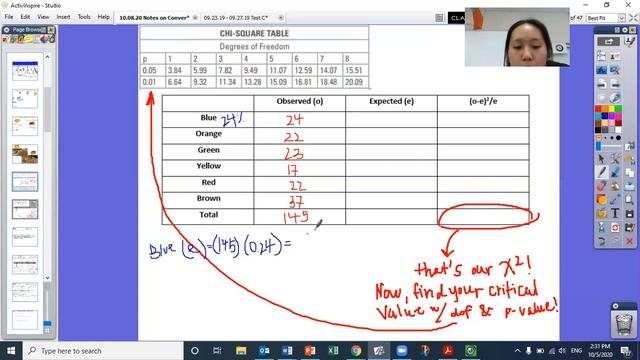 ActivInspire - Studio
10.08.20 Notes on Conver*
09.23.19 - 09.27.19 Test C*
of 47
Best Fit
Page Browser
CHI-SQUARE TABLE
Degrees of Freedom
p 1 2 3 4 5 6 7 8
0.05 3.84 5.99 7.82 9.49 11.07 12.59 14.07 15.51
0.01 6.64 9.32 11.34 13.28 15.09 16.81 18.48 20.09
Observed (o) Expected (e) (o-e)²/e
Blue 24% 24
Orange 22
Green 23
Yellow 17
Red 22
Brown 37
Total 145
Blue (e) = (145) (0.24) =
that's our X²!
Now, find your critical
value w/ dof & p-value!
2:31 PM
10/5/2020
ENG